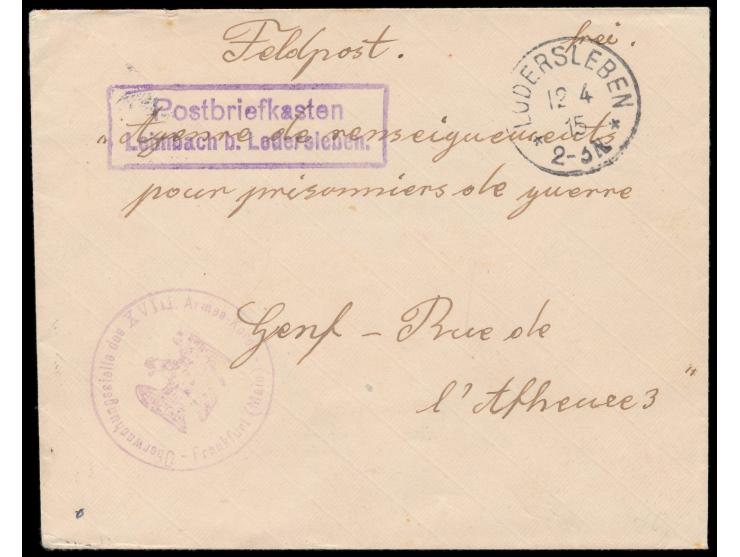 Feldpost. frei.
LODERSLEBEN
12 4
15
* 2-3N *
Postbriefkasten
Leimbach b. Lodersleben.
"Agence de renseignements
pour prisonniers de guerre
Genf – Rue de
l'Athenee 3"
Überwachungsstelle des XVIII. Armee-Korps – Frankfurt (Main)